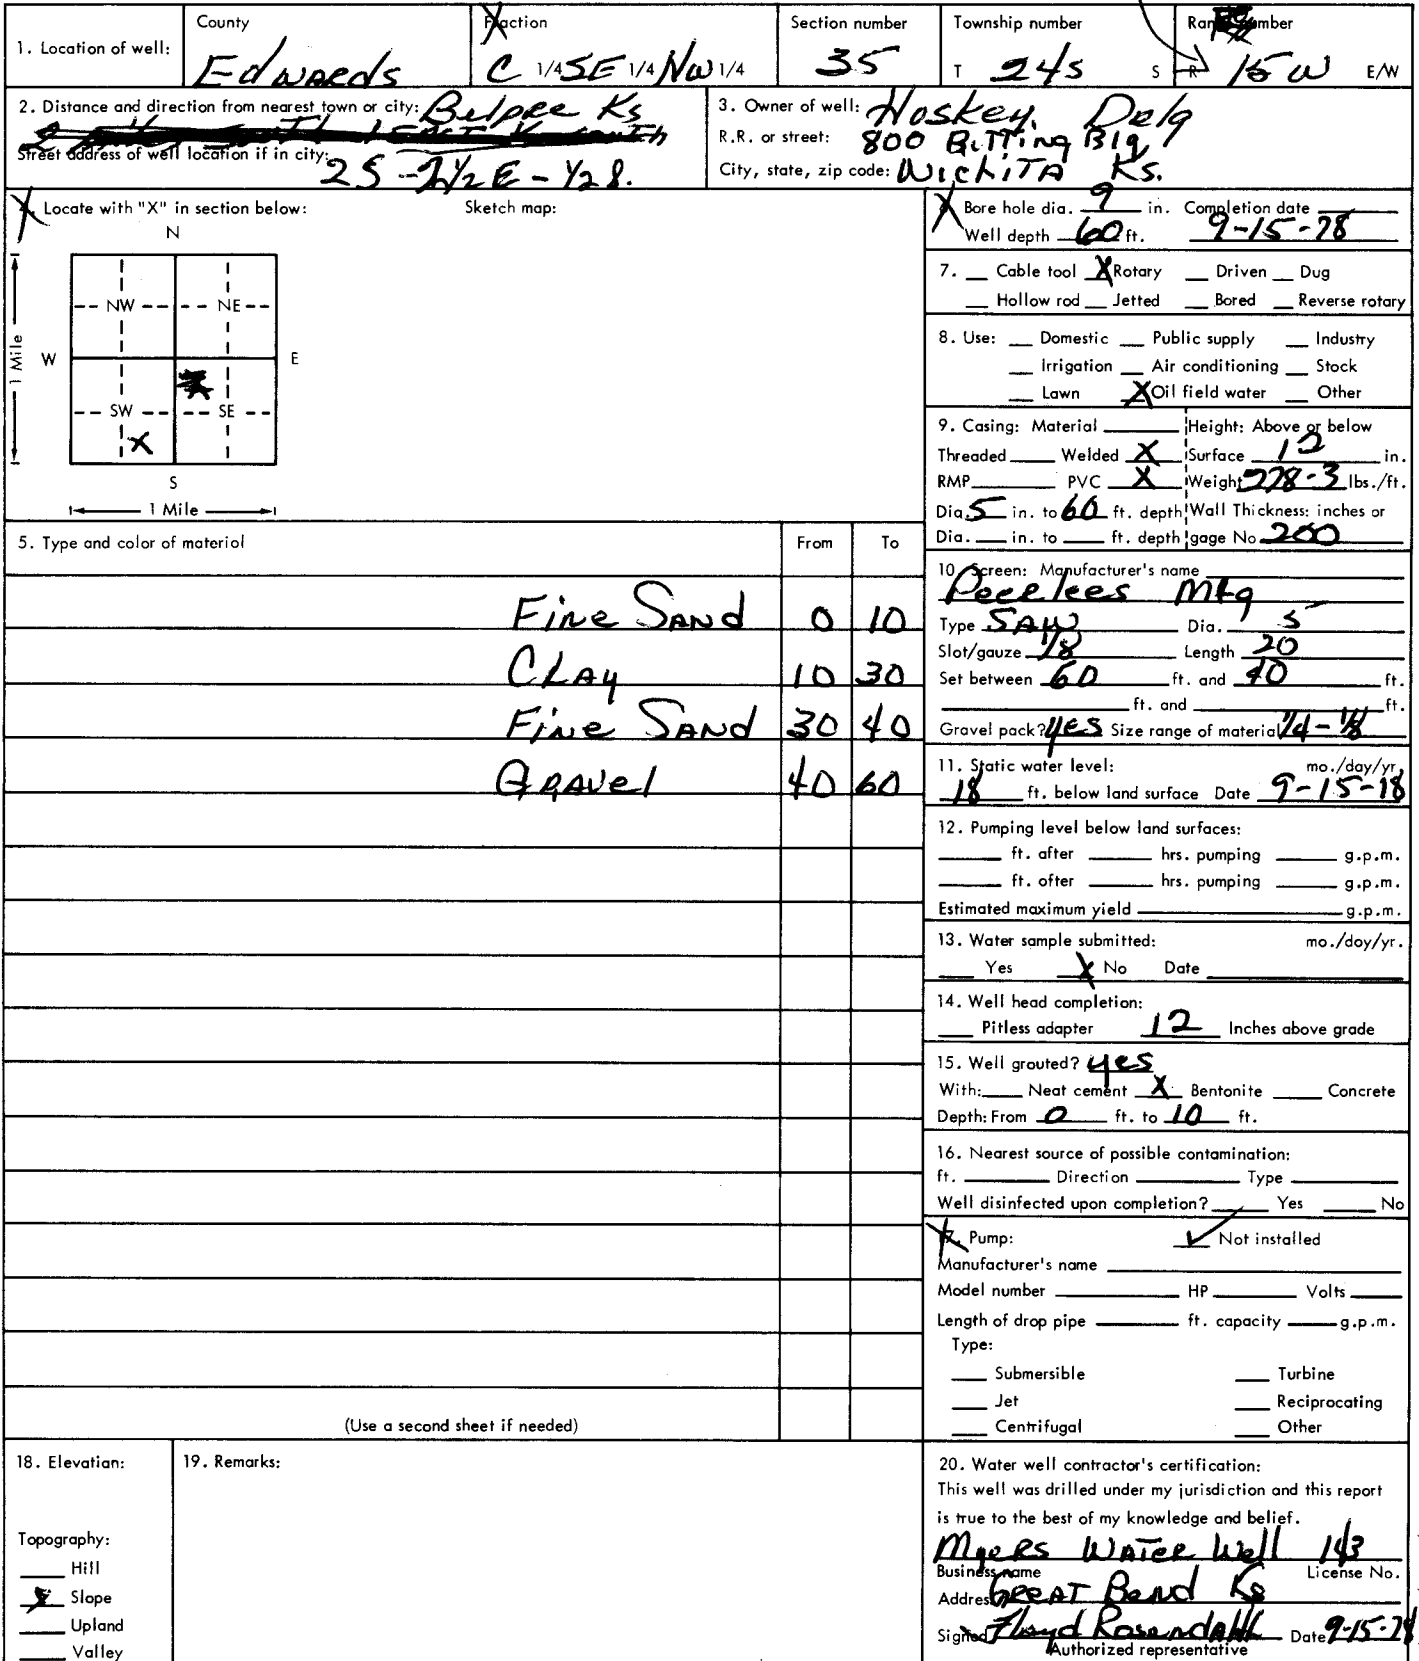 1. Location of well:
County
Edwards
Fraction
C 1/4 SE 1/4 NW 1/4
Section number
35
Township number
T 24S S
Range number
R 15 W E/W
2. Distance and direction from nearest town or city: Belpre Ks
Street address of well location if in city:
2S - 2 1/2 E - 1/2 S.
3. Owner of well: Hoskey Delg
R.R. or street: 800 Bitting Blg
City, state, zip code: Wichita Ks.
4. Locate with "X" in section below: Sketch map:
N
NW NE
W E
1 Mile
SW SE
X
S
1 Mile
5. Type and color of material From To
Fine Sand 0 10
Clay 10 30
Fine Sand 30 40
Gravel 40 60
(Use a second sheet if needed)
6. Bore hole dia. 9 in. Completion date
Well depth 60 ft. 9-15-78
7. __ Cable tool X Rotary __ Driven __ Dug
__ Hollow rod __ Jetted __ Bored __ Reverse rotary
8. Use: __ Domestic __ Public supply __ Industry
__ Irrigation __ Air conditioning __ Stock
__ Lawn X Oil field water __ Other
9. Casing: Material ____ Height: Above or below
Threaded ____ Welded X Surface 12 in.
RMP ____ PVC X Weight 278-3 lbs./ft.
Dia. 5 in. to 60 ft. depth Wall Thickness: inches or
Dia. ___ in. to ___ ft. depth gage No 200
10. Screen: Manufacturer's name
Peerlees Mfg
Type SAW Dia. 5
Slot/gauze 1/8 Length 20
Set between 60 ft. and 40 ft.
____ ft. and ____ ft.
Gravel pack? yes Size range of material 1/4 - 1/8
11. Static water level: mo./day/yr.
18 ft. below land surface Date 9-15-78
12. Pumping level below land surfaces:
____ ft. after ____ hrs. pumping ____ g.p.m.
____ ft. after ____ hrs. pumping ____ g.p.m.
Estimated maximum yield ____ g.p.m.
13. Water sample submitted: mo./day/yr.
__ Yes X No Date ____
14. Well head completion:
__ Pitless adapter 12 Inches above grade
15. Well grouted? yes
With: __ Neat cement X Bentonite __ Concrete
Depth: From 0 ft. to 10 ft.
16. Nearest source of possible contamination:
ft. ____ Direction ____ Type ____
Well disinfected upon completion? ____ Yes ____ No
17. Pump: ✓ Not installed
Manufacturer's name ____
Model number ____ HP ____ Volts ____
Length of drop pipe ____ ft. capacity ____ g.p.m.
Type:
__ Submersible __ Turbine
__ Jet __ Reciprocating
__ Centrifugal __ Other
18. Elevation:
Topography:
__ Hill
X Slope
__ Upland
__ Valley
19. Remarks:
20. Water well contractor's certification:
This well was drilled under my jurisdiction and this report
is true to the best of my knowledge and belief.
Myers Water Well 143
Business name License No.
Address Great Bend Ks
Signed Floyd Rosendahl Date 9-15-78
Authorized representative